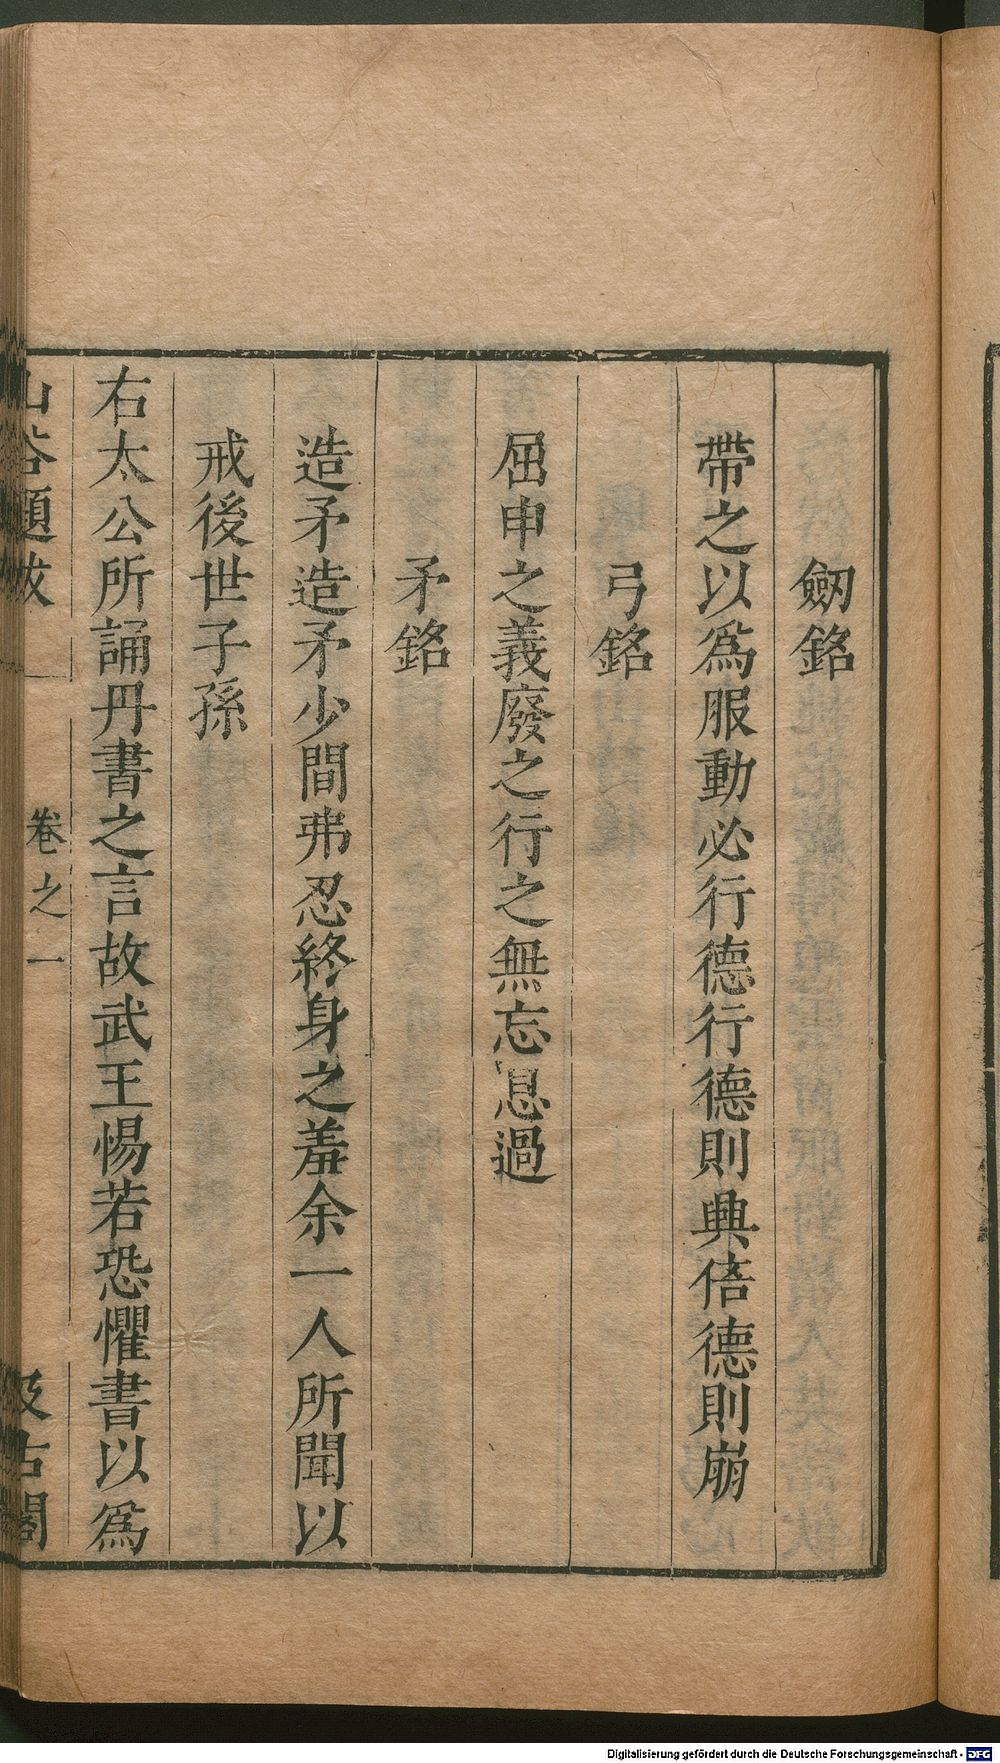 劒銘
帶之以爲服動必行德行德則興偣德則崩
弓銘
屈申之義廢之行之無忘息過
矛銘
造矛造矛少間弗忍終身之羞余一人所聞以
戒後世子孫
右太公所誦丹書之言故武王惕若恐懼書以爲
山谷題跋 卷之一 汲古閣
Digitalisierung gefördert durch die Deutsche Forschungsgemeinschaft - DFG